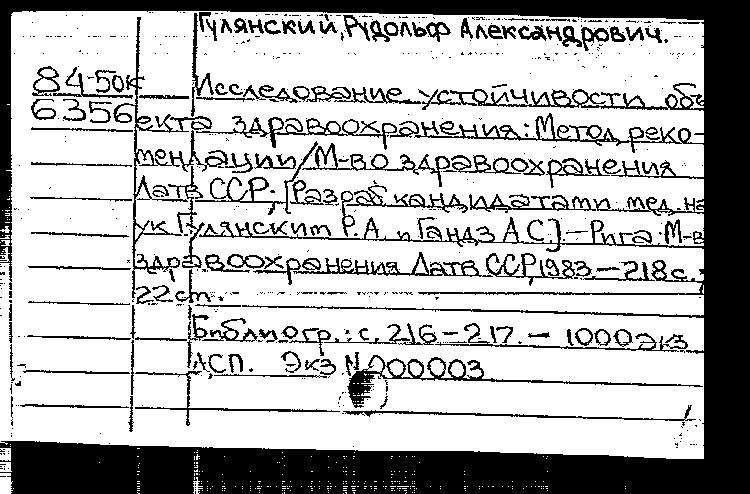 Гулянский, Рудольф Александрович.
84-50к Исследование устойчивости объ
6356 екта здравоохранения: Метод. реко-
мендации / М-во здравоохранения
Латв ССР; [Разраб. кандидатами мед. на
ук Гулянским Р.А. и Гандз А.С.] — Рига: М-в
здравоохранения Латв ССР, 1983. — 218 с.;
22 см. —
Библиогр.: с. 216-217. — 1000 экз
ДСП. Экз N 000003